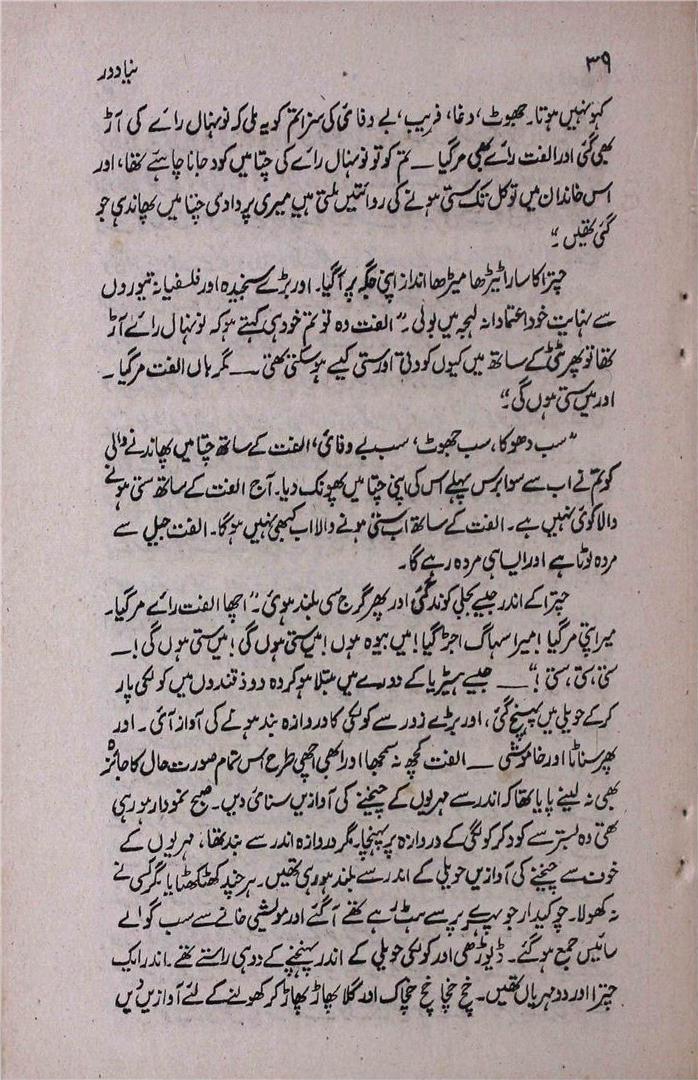 ۳۹
نیا دور
کہو نہیں ہوتا۔ جھوٹ، دغا، فریب، بے وفائی کی سزا تم کو یہ ملی کہ نونہال رائے کی آڑ
بھی گئی اور الفت رائے بھی مرگیا — تم کو تو نونہال رائے کی چتا میں کود جانا چاہیئے تھا، اور
اس خاندان میں تو کل تک ستی ہونے کی روائتیں ملتی ہیں میری پردادی چتا میں پھاندی جو
گئی تھیں۔"
چترا کا سارا ٹیڑھا میڑھا انداز اپنی جگہ پر آگیا۔ اور بڑے سنجیدہ اور فلسفیانہ تیوروں
سے نہایت خود اعتمادانہ لہجہ میں بولی۔ "الفت وہ تو تم خود ہی کہتے ہو کہ نونہال رائے آڑ
تھا تو پھر ٹٹی کے ساتھ میں کیوں کودتی اور ستی کیسے ہوسکتی تھی — مگر ہاں الفت مرگیا۔
اور میں ستی ہوں گی۔"
"سب دھوکا، سب جھوٹ، سب بے وفائی، الفت کے ساتھ چتا میں پھاندنے والی
کو تم نے اب سے سوا برس پہلے اس کی اپنی چتا میں پھونک دیا۔ آج الفت کے ساتھ ستی ہونے
والا کوئی نہیں ہے۔ الفت کے ساتھ اب ستی ہونے والا اب کبھی نہیں ہوگا۔ الفت جیل سے
مردہ لوٹا ہے اور ایسا ہی مردہ رہے گا۔
چترا کے اندر جیسے بجلی کوند گئی اور پھر گرج سی بلند ہوئی۔ "اچھا الفت رائے مرگیا۔
میرا پتی مرگیا! میرا سہاگ اجڑ گیا! میں بیوہ ہوں! میں ستی ہوں گی! میں ستی ہوں گی! —
ستی، ستی، ستی!" — جیسے ہیٹریا کے دورے میں مبتلا ہوکر وہ دو زقندوں میں کولکی پار
کرکے حویلی میں پہنچ گئی، اور بڑے زور سے کولکی کا دروازہ بند ہونے کی آواز آئی۔ اور
پھر سناٹا اور خاموشی — الفت کچھ نہ سمجھا اور ابھی اچھی طرح اس تمام صورت حال کا جائزہ
بھی نہ لینے پایا تھا کہ اندر سے مہریوں کے چیخنے کی آوازیں سنائی دیں۔ صبح نمودار ہو رہی
تھی وہ بستر سے کود کر کولکی کے دروازہ پر پہنچا۔ مگر دروازہ اندر سے بند تھا، مہریوں کے
خوف سے چیخنے کی آوازیں حویلی کے اندر سے بلند ہو رہی تھیں۔ ہرچند کھٹکھٹایا مگر کسی نے
نہ کھولا۔ چوکیدار جو پہرے پر سے ہٹ رہے تھے آگئے اور مویشی خانے سے سب گوالے
سائیس جمع ہوگئے۔ ڈیوڑھی اور کولکی حویلی کے اندر پہنچنے کے دو ہی راستے تھے۔ اندر ایک
چترا اور دو مہریاں تھیں۔ چیخ چیخ اور گلا پھاڑ پھاڑ کر کھولنے کے لئے آوازیں دیں